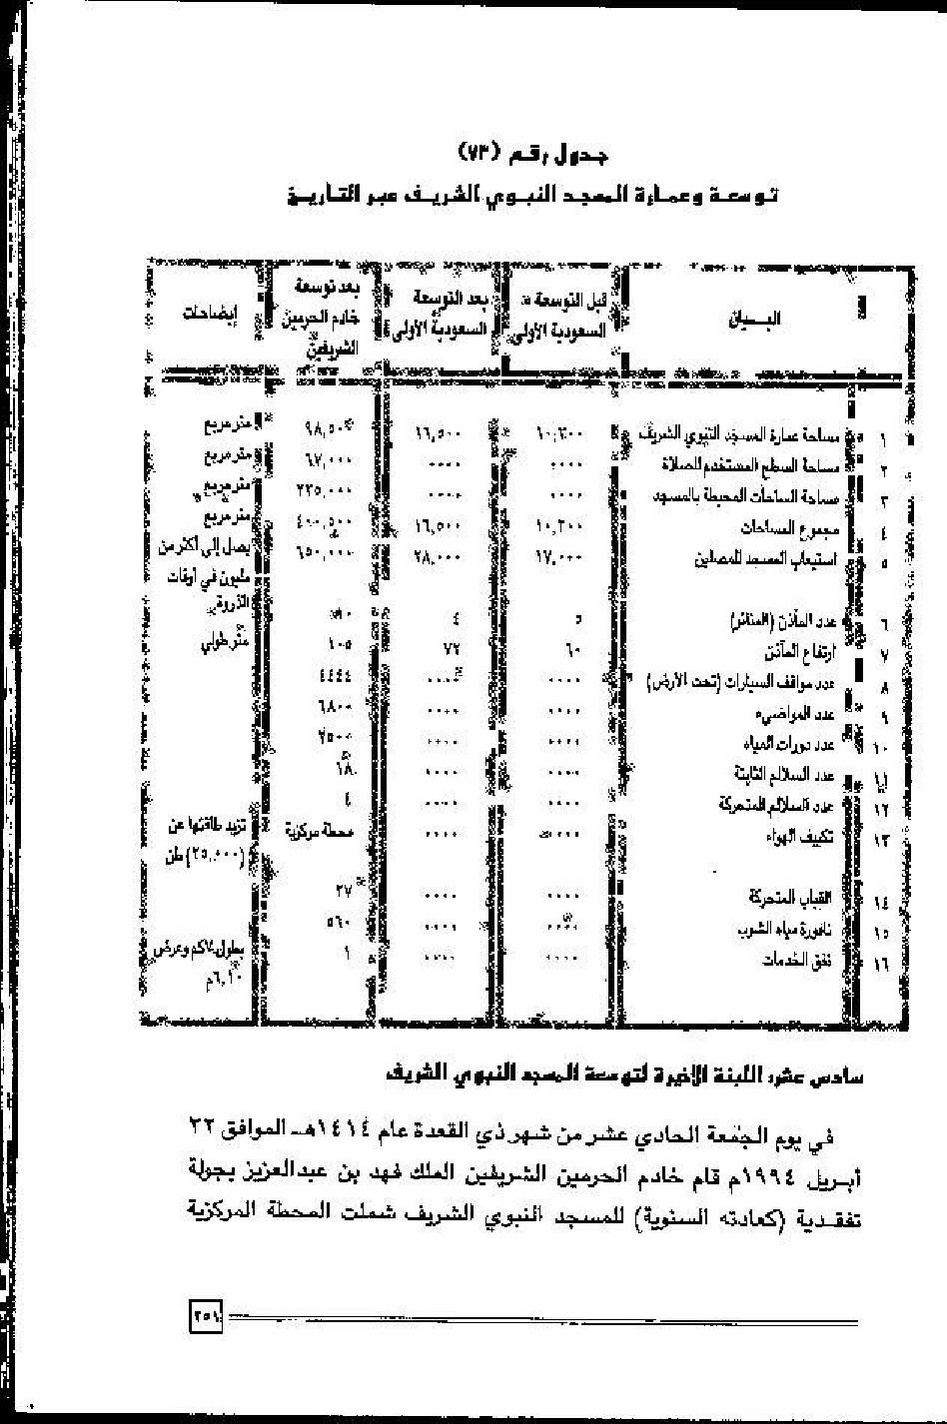 جدول رقم (٧٣)
توسعة وعمارة المسجد النبوي الشريف عبر التاريخ
البــيان قبل التوسعة السعودية الأولى بعد التوسعة السعودية الأولى بعد توسعة خادم الحرمين الشريفين إيضاحات
١ مساحة عمارة المسجد النبوي الشريف ١٠,٣٠٠ ١٦,٥٠٠ ٩٨,٥٠٠ متر مربع
٢ مساحة السطح المستخدم للصلاة ٠٠٠٠ ٠٠٠٠ ٦٧,٠٠٠ متر مربع
٣ مساحة الساحات المحيطة بالمسجد ٠٠٠٠ ٠٠٠٠ ٢٣٥,٠٠٠ متر مربع
٤ مجموع المساحات ١٠,٣٠٠ ١٦,٥٠٠ ٤٠٠,٥٠٠ متر مربع
٥ استيعاب المسجد للمصلين ١٧,٠٠٠ ٢٨,٠٠٠ ٦٥٠,٠٠٠ يصل إلى أكثر من
مليون في أوقات
الذروة
٦ عدد المآذن (المنائر) ٥ ٤ ١٠
٧ ارتفاع المآذن ٦٠ ٧٢ ١٠٥ متر طولي
٨ عدد مواقف السيارات (تحت الأرض) ٠٠٠٠ ٠٠٠٠ ٤٤٤٤
٩ عدد المواضيء ٠٠٠٠ ٠٠٠٠ ٦٨٠٠
١٠ عدد دورات المياه ٠٠٠٠ ٠٠٠٠ ٢٥٠٠
١١ عدد السلالم الثابتة ٠٠٠٠ ٠٠٠٠ ١٨
١٢ عدد السلالم المتحركة ٠٠٠٠ ٠٠٠٠ ٤
١٣ تكييف الهواء ٠٠٠٠ ٠٠٠٠ محطة مركزية تزيد طاقتها عن
(٢٥,٠٠٠) طن
١٤ القباب المتحركة ٠٠٠٠ ٠٠٠٠ ٢٧
١٥ نافورة مياه الشرب ٠٠٠٠ ٠٠٠٠ ٥٦٠
١٦ نفق الخدمات ٠٠٠٠ ٠٠٠٠ ١ بطول ٧كم وعرض
٦,١٠م
سادس عشر: اللبنة الأخيرة لتوسعة المسجد النبوي الشريف
في يوم الجمعة الحادي عشر من شهر ذي القعدة عام ١٤١٤هـ الموافق ٢٢
أبريل ١٩٩٤م قام خادم الحرمين الشريفين الملك فهد بن عبدالعزيز بجولة
تفقدية (كعادته السنوية) للمسجد النبوي الشريف شملت المحطة المركزية
٢٥١